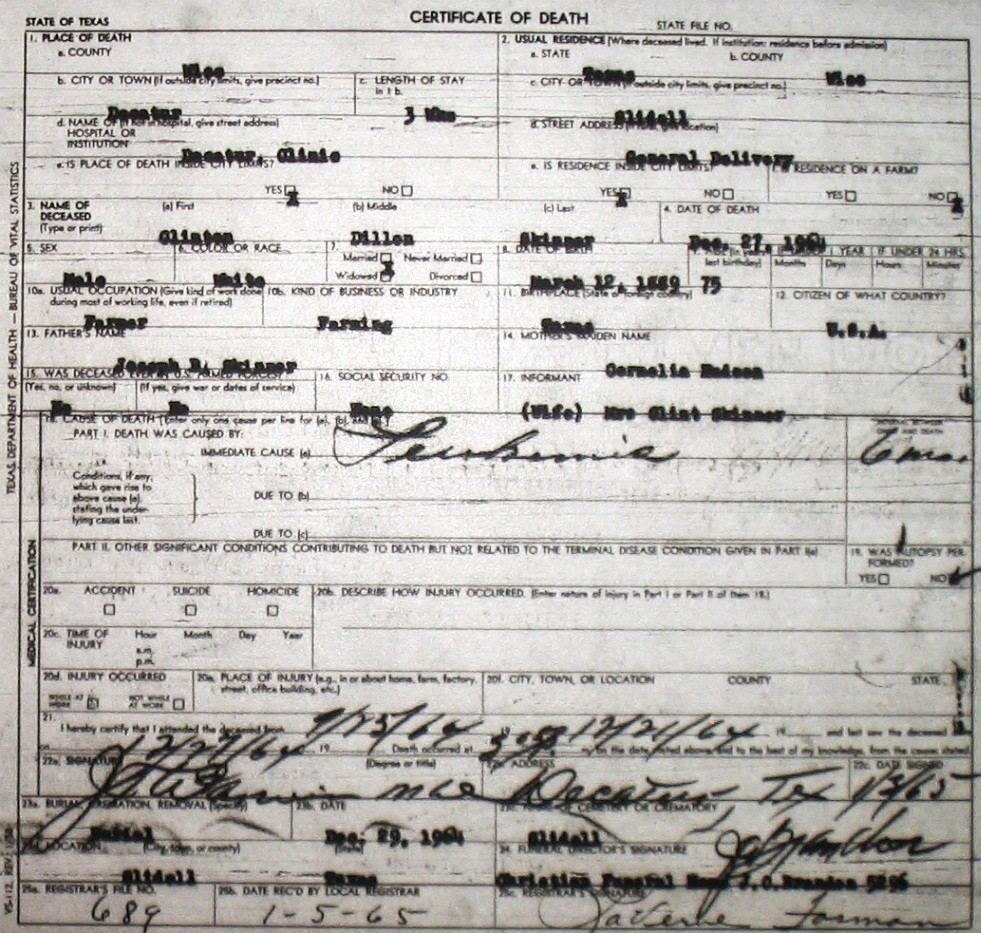 STATE OF TEXAS
CERTIFICATE OF DEATH
STATE FILE NO.
1. PLACE OF DEATH
a. COUNTY
Wise
2. USUAL RESIDENCE (Where deceased lived. If institution: residence before admission)
a. STATE
Texas
b. COUNTY
Wise
b. CITY OR TOWN (If outside city limits, give precinct no.)
Decatur
c. LENGTH OF STAY
in 1 b.
3 Wks
c. CITY OR TOWN (If outside city limits, give precinct no.)
Slidell
d. NAME OF (If not in hospital, give street address)
HOSPITAL OR
INSTITUTION
Decatur Clinic
d. STREET ADDRESS (If rural, give location)
General Delivery
e. IS PLACE OF DEATH INSIDE CITY LIMITS?
YES X NO
e. IS RESIDENCE INSIDE CITY LIMITS?
YES X NO
f. IS RESIDENCE ON A FARM?
YES NO X
3. NAME OF
DECEASED
(Type or print)
(a) First
Clinton
(b) Middle
Dillen
(c) Last
Skinner
4. DATE OF DEATH
Dec. 27, 1964
5. SEX
Male
6. COLOR OR RACE
White
7.
Married X Never Married
Widowed Divorced
8. DATE OF BIRTH
March 12, 1889
last birthday)
75
YEAR
Months Days
IF UNDER 24 HRS.
Hours Minutes
10a. USUAL OCCUPATION (Give kind of work done
during most of working life, even if retired)
Farmer
10b. KIND OF BUSINESS OR INDUSTRY
Farming
11. BIRTHPLACE (State or foreign country)
Texas
12. CITIZEN OF WHAT COUNTRY?
U.S.A.
13. FATHER'S NAME
Joseph B. Skinner
14. MOTHER'S MAIDEN NAME
Cornelia
15. WAS DECEASED EVER IN U.S. ARMED FORCES?
(Yes, no, or unknown)
No
(If yes, give war or dates of service)
No
16. SOCIAL SECURITY NO.
None
17. INFORMANT
(Wife) Mrs Clint Skinner
18. CAUSE OF DEATH (Enter only one cause per line for (a), (b), and (c).)
PART I. DEATH WAS CAUSED BY:
IMMEDIATE CAUSE (a)
Leukemia
INTERVAL BETWEEN
ONSET AND DEATH
6 mos.
Conditions, if any,
which gave rise to
above cause (a),
stating the under-
lying cause last.
DUE TO (b)
DUE TO (c)
PART II. OTHER SIGNIFICANT CONDITIONS CONTRIBUTING TO DEATH BUT NOT RELATED TO THE TERMINAL DISEASE CONDITION GIVEN IN PART I(a)
19. WAS AUTOPSY PER-
FORMED?
YES NO
20a. ACCIDENT SUICIDE HOMICIDE
20b. DESCRIBE HOW INJURY OCCURRED. (Enter nature of injury in Part I or Part II of item 18.)
20c. TIME OF
INJURY
Hour Month Day Year
a.m.
p.m.
20d. INJURY OCCURRED
WHILE AT
WORK
NOT WHILE
AT WORK
20e. PLACE OF INJURY (e.g., in or about home, farm, factory,
street, office building, etc.)
20f. CITY, TOWN, OR LOCATION COUNTY STATE
21. I hereby certify that I attended the deceased from 9/25/64 19 12/21/64 19 and last saw the deceased
on 12/27/64 19 Death occurred at m, on the date stated above, and to the best of my knowledge, from the cause stated.
22a. SIGNATURE
(Degree or title)
22b. ADDRESS
Decatur Tex
22c. DATE SIGNED
1/3/65
23a. BURIAL, CREMATION, REMOVAL (Specify)
Burial
23b. DATE
Dec. 29, 1964
23c. NAME OF CEMETERY OR CREMATORY
Slidell
23d. LOCATION (City, town, or county) (State)
Slidell Texas
24. FUNERAL DIRECTOR'S SIGNATURE
Christian Funeral Home J.C.Brandon 5296
25a. REGISTRAR'S FILE NO.
689
25b. DATE REC'D BY LOCAL REGISTRAR
1-5-65
25c. REGISTRAR'S SIGNATURE
LaVerne Forman
TEXAS DEPARTMENT OF HEALTH — BUREAU OF VITAL STATISTICS
MEDICAL CERTIFICATION